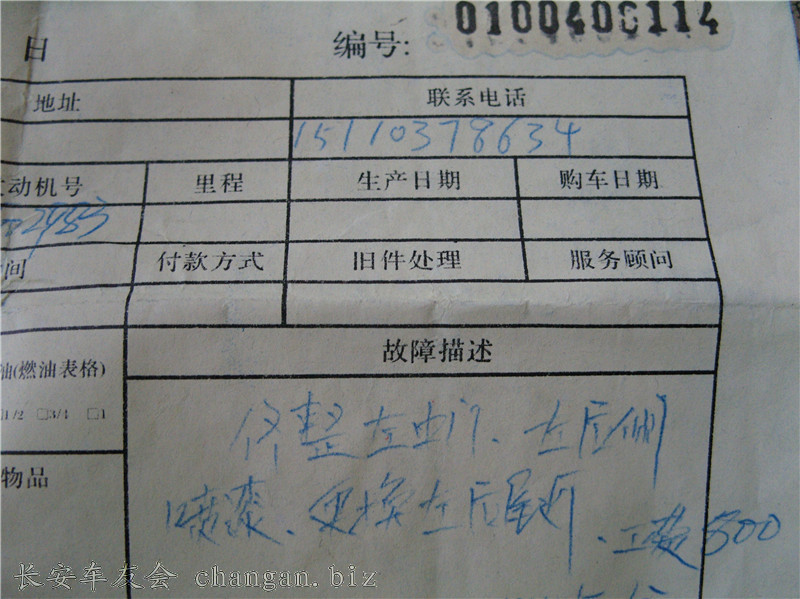 日 编号: 0100400114
地址 联系电话
15110378634
动机号 里程 生产日期 购车日期
2983
间 付款方式 旧件处理 服务顾问
油(燃油表格) 故障描述
1/2 □3/4 □1
修整左中门、左后侧
物品
喷漆、更换左后尾灯、工费500
长安车友会 changan.biz